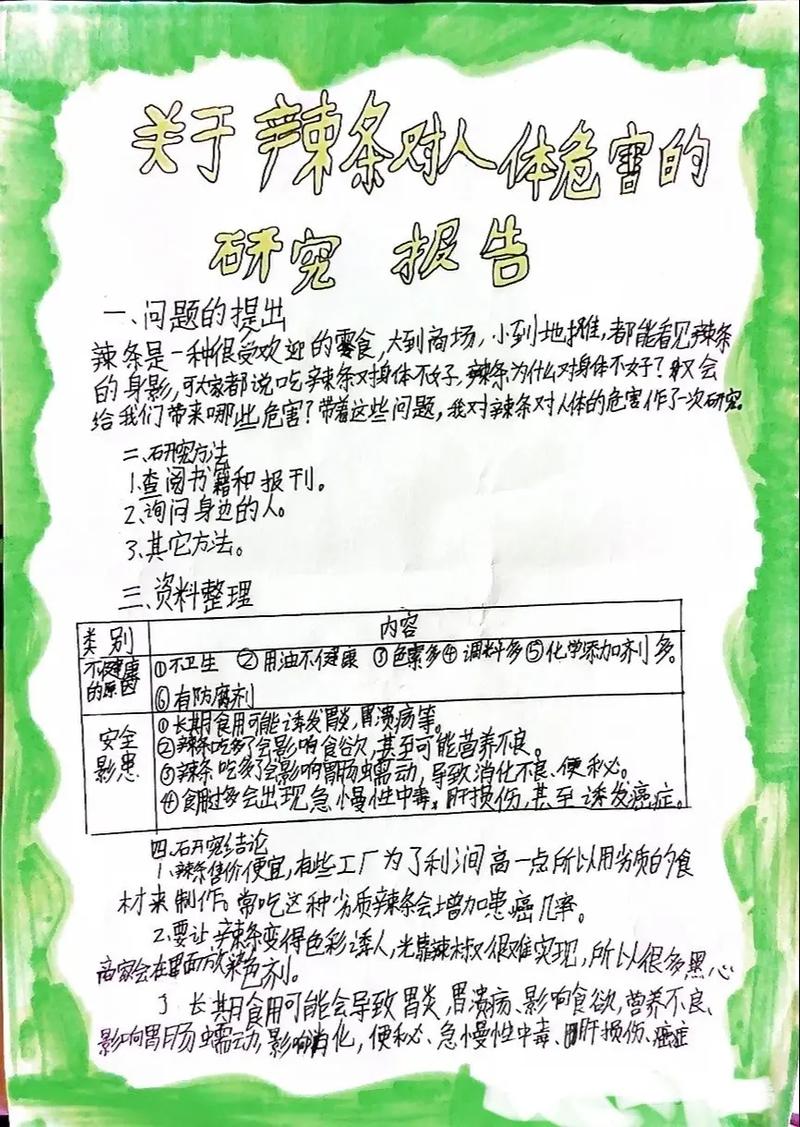 关于辣条对人体危害的
研究 报告
一、问题的提出
辣条是一种很受欢迎的零食,大到商场,小到地摊,都能看见辣条
的身影,可大家都说吃辣条对身体不好,辣条为什么对身体不好?又会
给我们带来哪些危害?带着这些问题,我对辣条对人体的危害作了一次研究。
二、研究方法
1.查阅书籍和报刊。
2.询问身边的人。
3.其它方法。
三、资料整理
类别 内容
不健康的原因 ①不卫生 ②用油不健康 ③色素多④调料多⑤化学添加剂多。
⑥有防腐剂
安全影患 ①长期食用可能诱发胃炎,胃溃病等。
②辣条吃多了会影响食欲,甚至可能营养不良。
③辣条吃多了会影响胃肠蠕动,导致消化不良、便秘。
④食用过多会出现急慢性中毒,肝损伤,甚至诱发癌症。
四、研究结论
1.辣条售价便宜,有些工厂为了利润高一点所以用劣质的食
材来制作。常吃这种劣质辣条会增加患癌几率。
2.要让辣条变得色彩诱人,光靠辣椒很难实现,所以很多黑心
商家会在里面放染色剂。
3 长期食用可能会导致胃炎,胃溃病、影响食欲,营养不良、
影响胃肠蠕动,影响消化,便秘、急慢性中毒、肝损伤、癌症